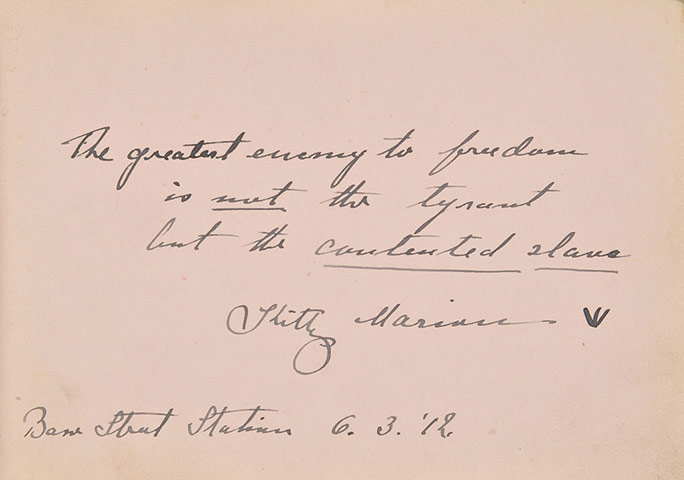 The greatest enemy to freedom
is not the tyrant
but the contented slave
Kitty Marion
Bow Street Station 6. 3. '12.